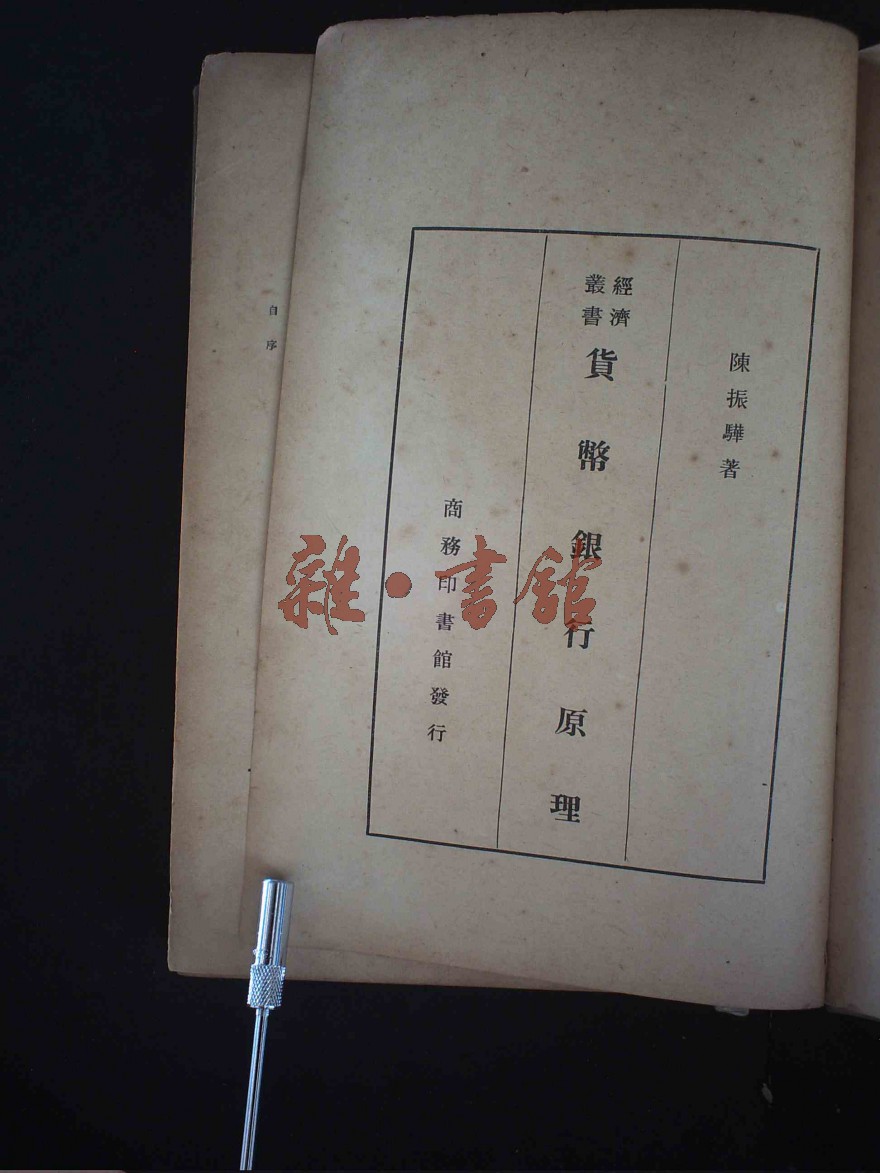 陳振驊著
經濟
叢書
貨幣銀行原理
商務印書館發行
自序
雜·書館